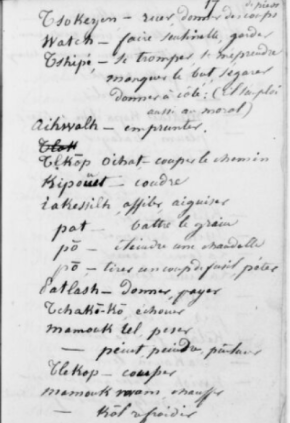 17
Tsokeyen – ruer, donner des coups
Watch – faire sentinelle, garder
Tshipé, – se tromper, se méprendre
manquer le but, s'égarer
donner à côté: (Employé
aussi au moral)
Aihwalh – emprunter.
Tlkōp oihat, couper le chemin
Kipoüet – coudre
takessilh, affiler aiguiser
pat – battre le grain
pō – éteindre une chandelle
pō, – tirer un coup de fusil, péter
Patlash – donner, payer
Tchakō-kō, échouer
mamouk tel, peser
– peint, peindre, peinturer
Tlkop – couper
mamouk wam, chauffer
– kōl refroidir